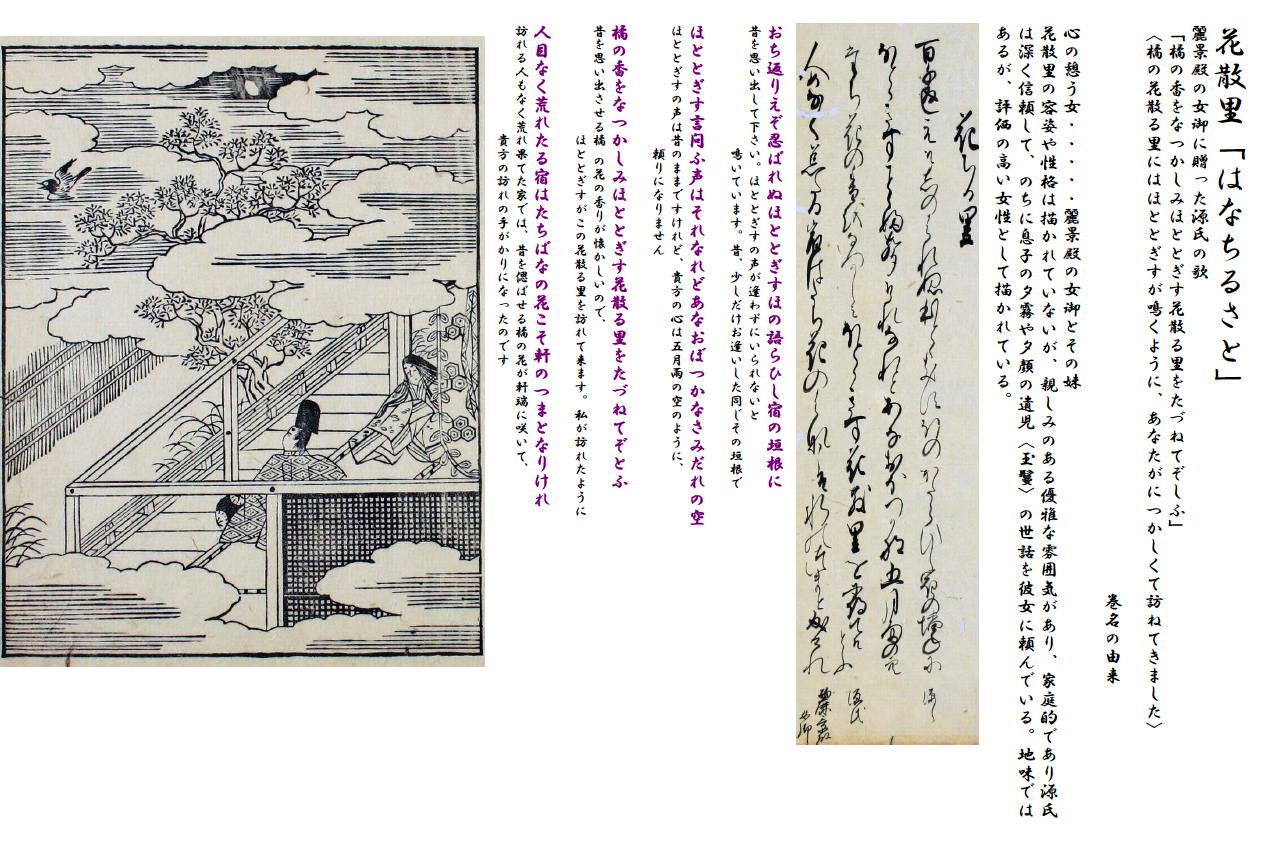 花散里「はなちるさと」
麗景殿の女御に贈った源氏の歌
「橘の香をなつかしみほととぎす花散る里をたづねてぞしふ」
〈橘の花散る里にはほととぎすが鳴くように、あなたがにつかしくて訪ねてきました〉
巻名の由来
心の憩う女・・・・・麗景殿の女御とその妹
花散里の容姿や性格は描かれていないが、親しみのある優雅な雰囲気があり、家庭的であり源氏
は深く信頼して、のちに息子の夕霧や夕顔の遺児〈玉鬘〉の世話を彼女に頼んでいる。地味では
あるが、評価の高い女性として描かれている。
花ちる里
おち返りえぞ忍ばれぬほととぎすほの語らひし宿の垣根に
昔を思い出して下さい。ほととぎすの声が逢わずにいられないと
鳴いています。昔、少しだけお逢いした同じその垣根で
ほととぎす言問ふ声はそれなれどあなおぼつかなさみだれの空
ほととぎすの声は昔のままですけれど、貴方の心は五月雨の空のように、
頼りになりません
橘の香をなつかしみほととぎす花散る里をたづねてぞとふ
昔を思い出させる橘の花の香りが懐かしいので、
ほととぎすがこの花散る里を訪れて来ます。私が訪れたように
人目なく荒れたる宿はたちばなの花こそ軒のつまとなりけれ
訪れる人もなく荒れ果てた家では、昔を偲ばせる橘の花が軒端に咲いて、
貴方の訪れの手がかりになったのです